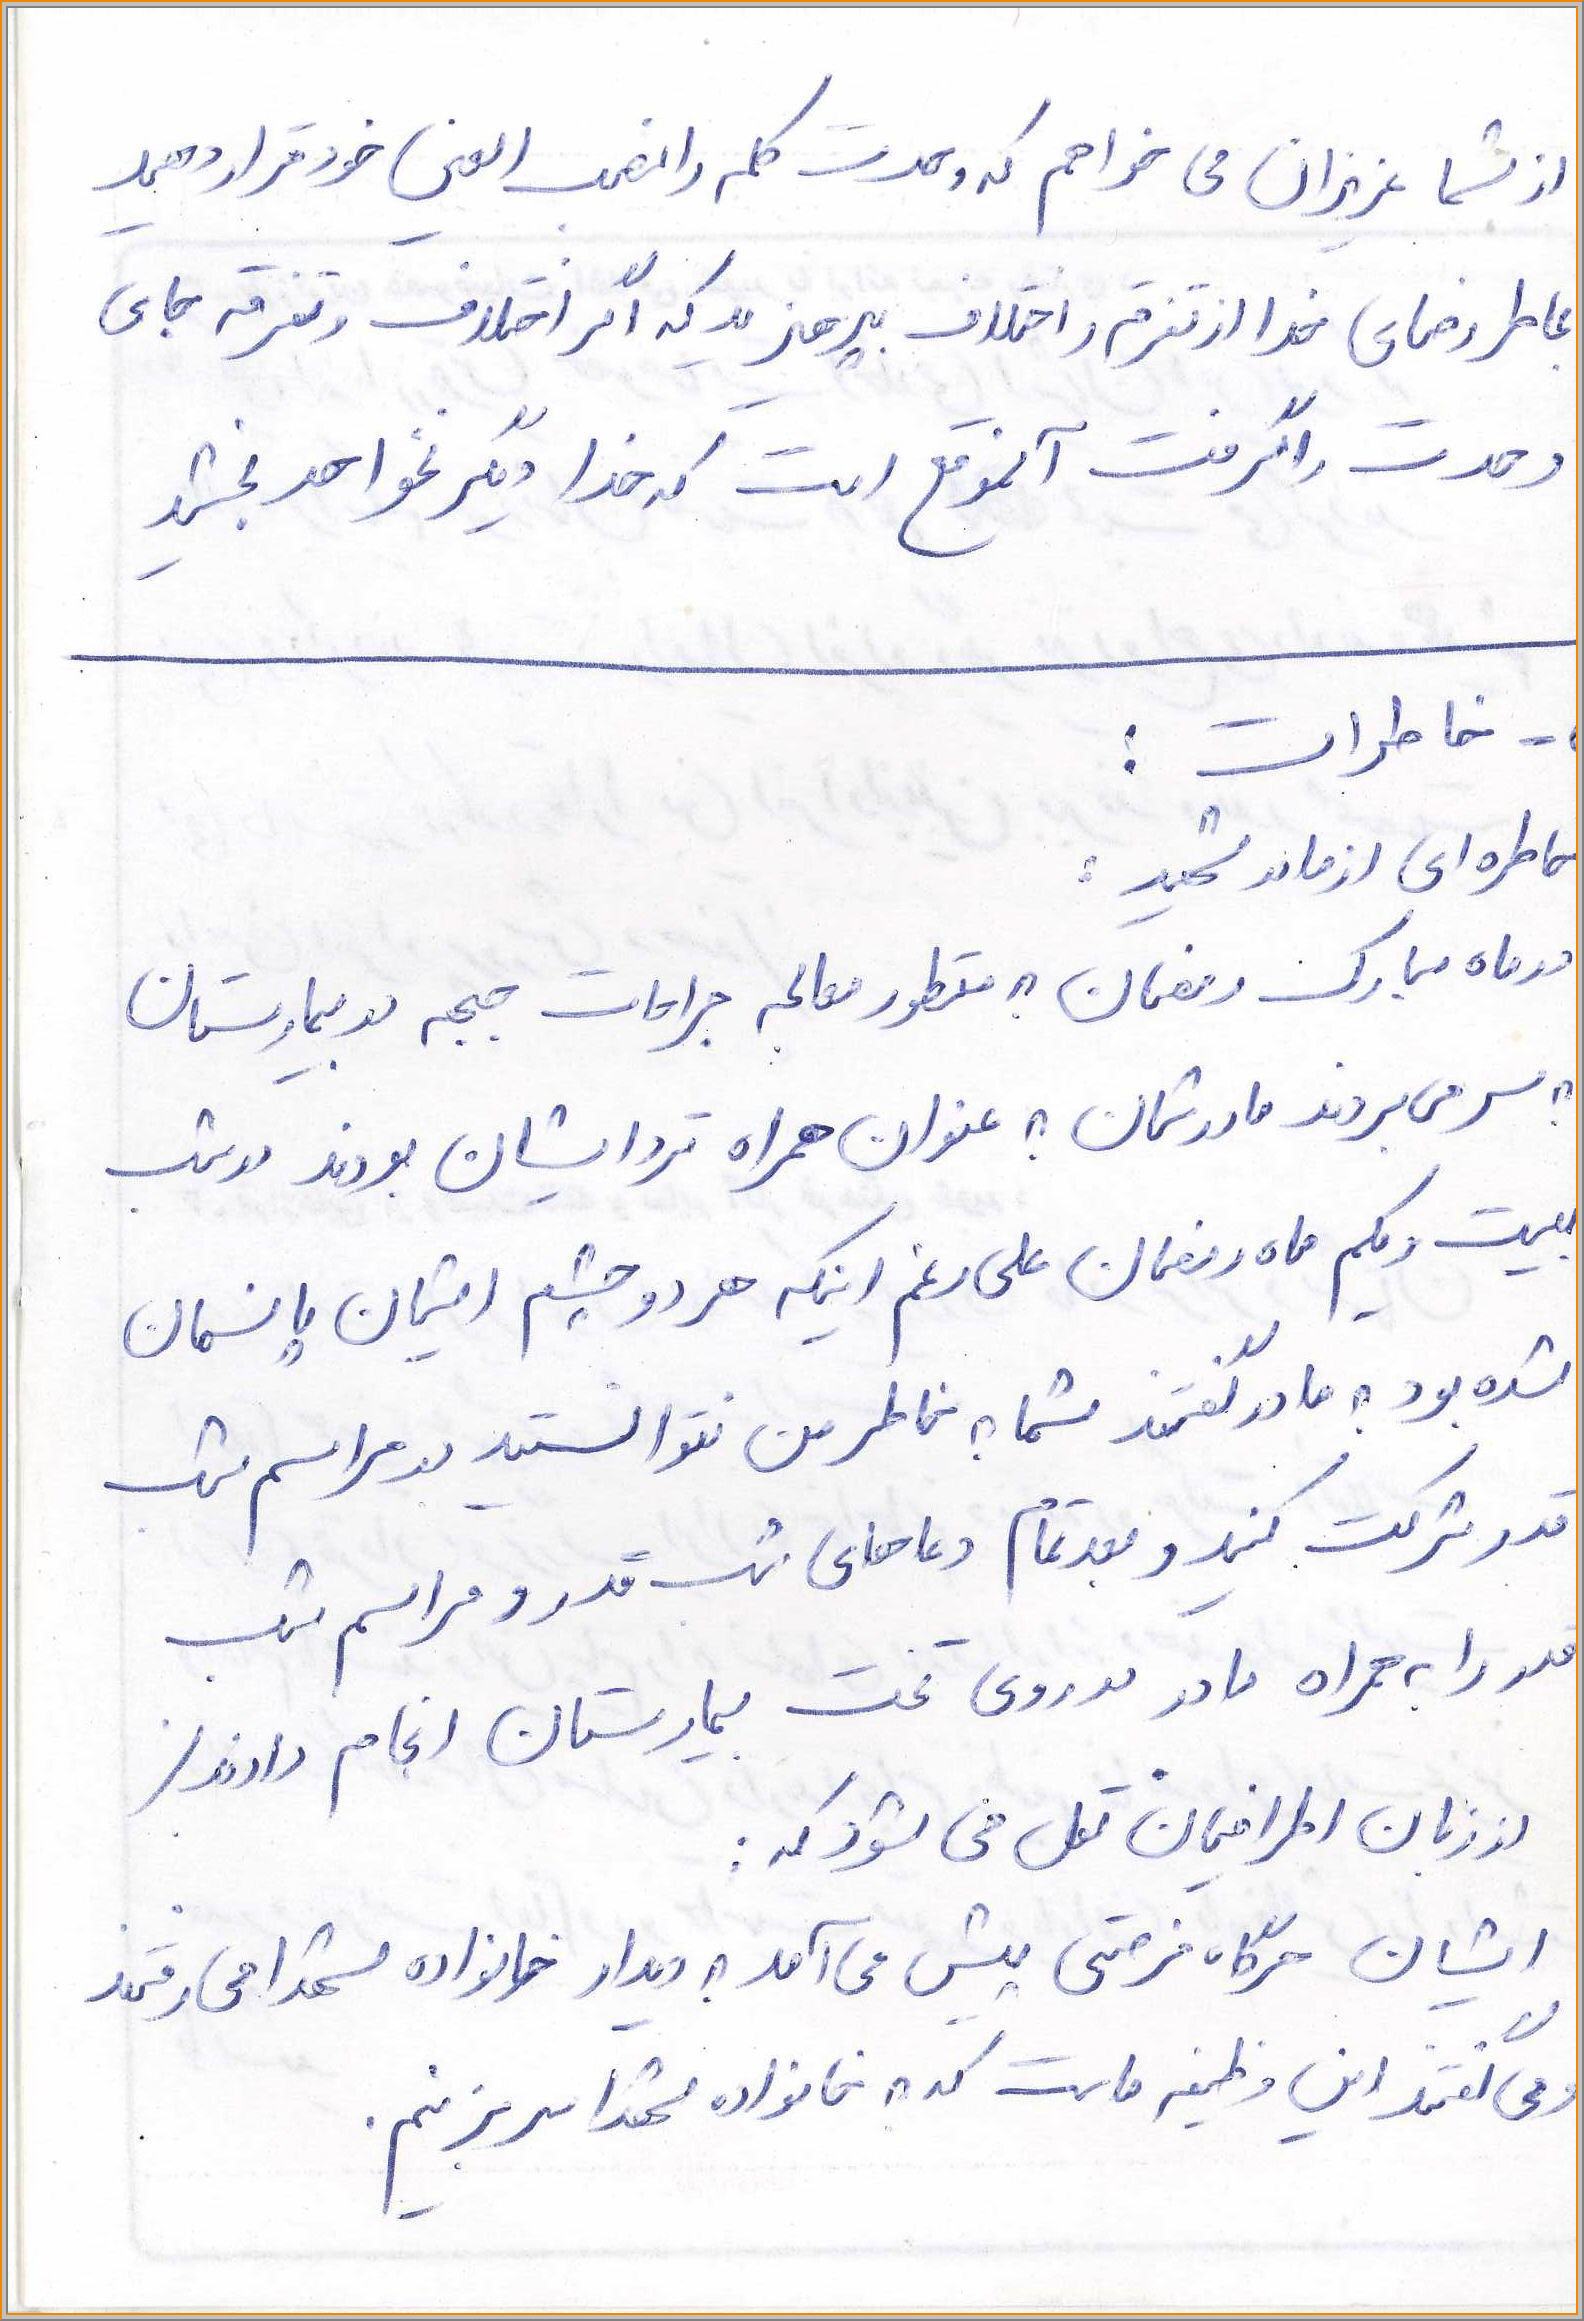 از شما عزیزان می خواهم که وحدت کلمه را نصب العین خود قرار دهید
بخاطر رضای خدا از تفرقه و اختلاف بپرهیزید که اگر اختلاف و تفرقه جای
وحدت را گرفت آنموقع است که خدا دیگر نخواهد بخشید
- خاطرات :
خاطره ای از مادر شهید :
در ماه مبارک رمضان به منظور معالجه جراحات جبهه در بیمارستان
به سر می بردند مادرشان به عنوان همراه نزد ایشان بودند در شب
بیست و یکم ماه رمضان علی رغم اینکه هر دو چشم ایشان پانسمان
شده بود به مادر گفتند شما به خاطر من نتوانستید در مراسم شب
قدر شرکت کنید و بعد تمام دعاهای شب قدر و مراسم شب
قدر را به همراه مادر در روی تخت بیمارستان انجام دادند.
از زبان اطرافیان نقل می شود که :
ایشان هرگاه فرصتی پیش می آمد به دیدار خانواده شهدا می رفتند
و می گفتند این وظیفه ماست که به خانواده شهدا سر بزنیم.